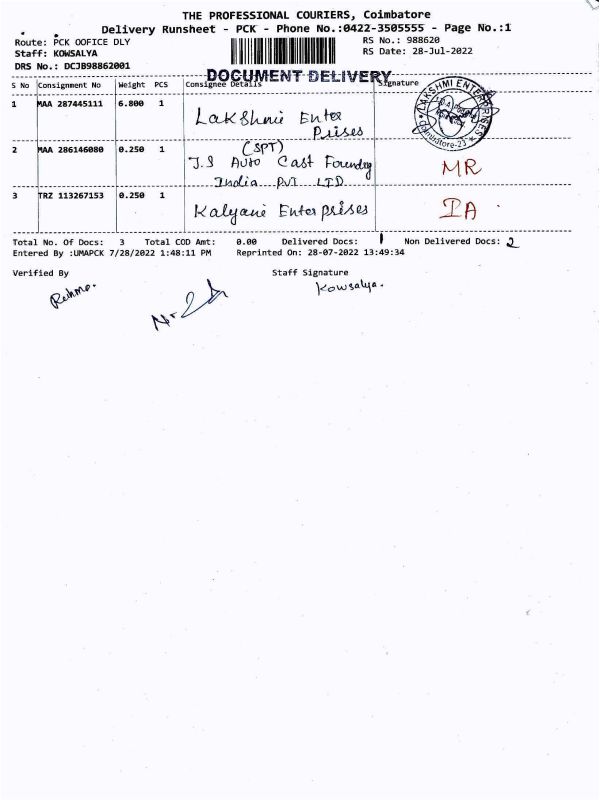 THE PROFESSIONAL COURIERS, Coimbatore
Delivery Runsheet - PCK - Phone No.:0422-3505555 - Page No.:1
Route: PCK OOFICE DLY RS No.: 988620
Staff: KOWSALYA RS Date: 28-Jul-2022
DRS No.: DCJB98862001
DOCUMENT DELIVERY
S No Consignment No Weight PCS Consignee Details Signature
1 MAA 287445111 6.800 1 Lakshmi Enter
Prises
LAKSHMI ENTERPRISES
Coimbatore-23
2 MAA 286146080 0.250 1 (SPT)
J.S Auto Cast Foundry MR
India Pvt LTD
3 TRZ 113267153 0.250 1 Kalyani Enterprises IA
Total No. Of Docs: 3 Total COD Amt: 0.00 Delivered Docs: 1 Non Delivered Docs: 2
Entered By :UMAPCK 7/28/2022 1:48:11 PM Reprinted On: 28-07-2022 13:49:34
Verified By Staff Signature
Kowsalya.